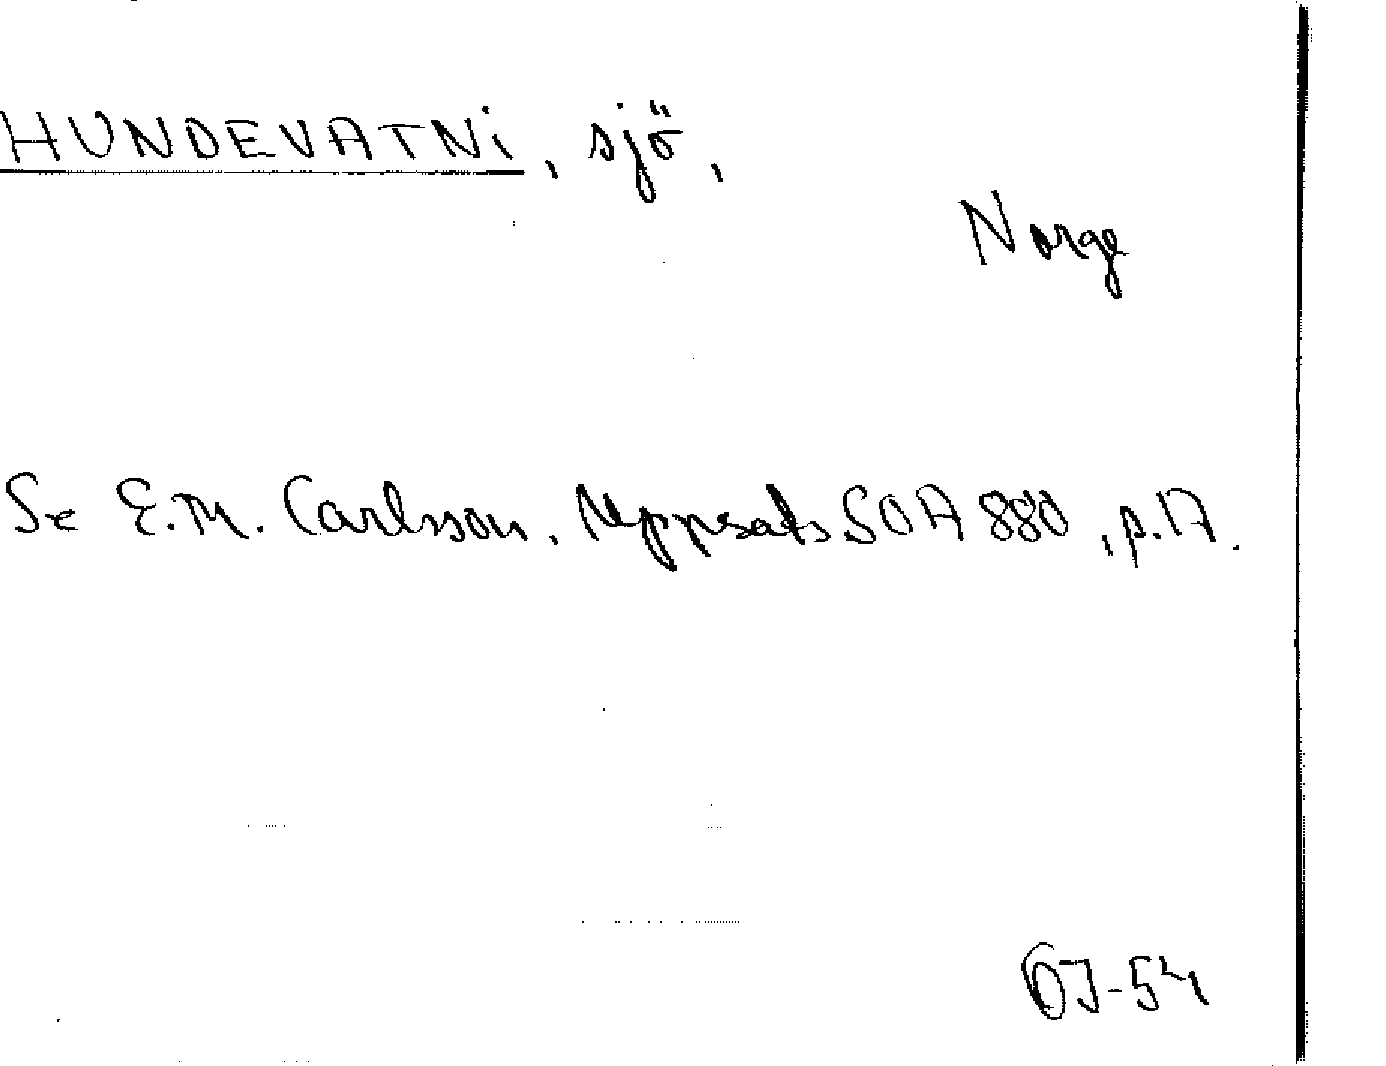 HUNDEVATNi, sjö,
Norge
Se E.M. Carlsson, Uppsats SOA 880, p.17.
ÖJ-54